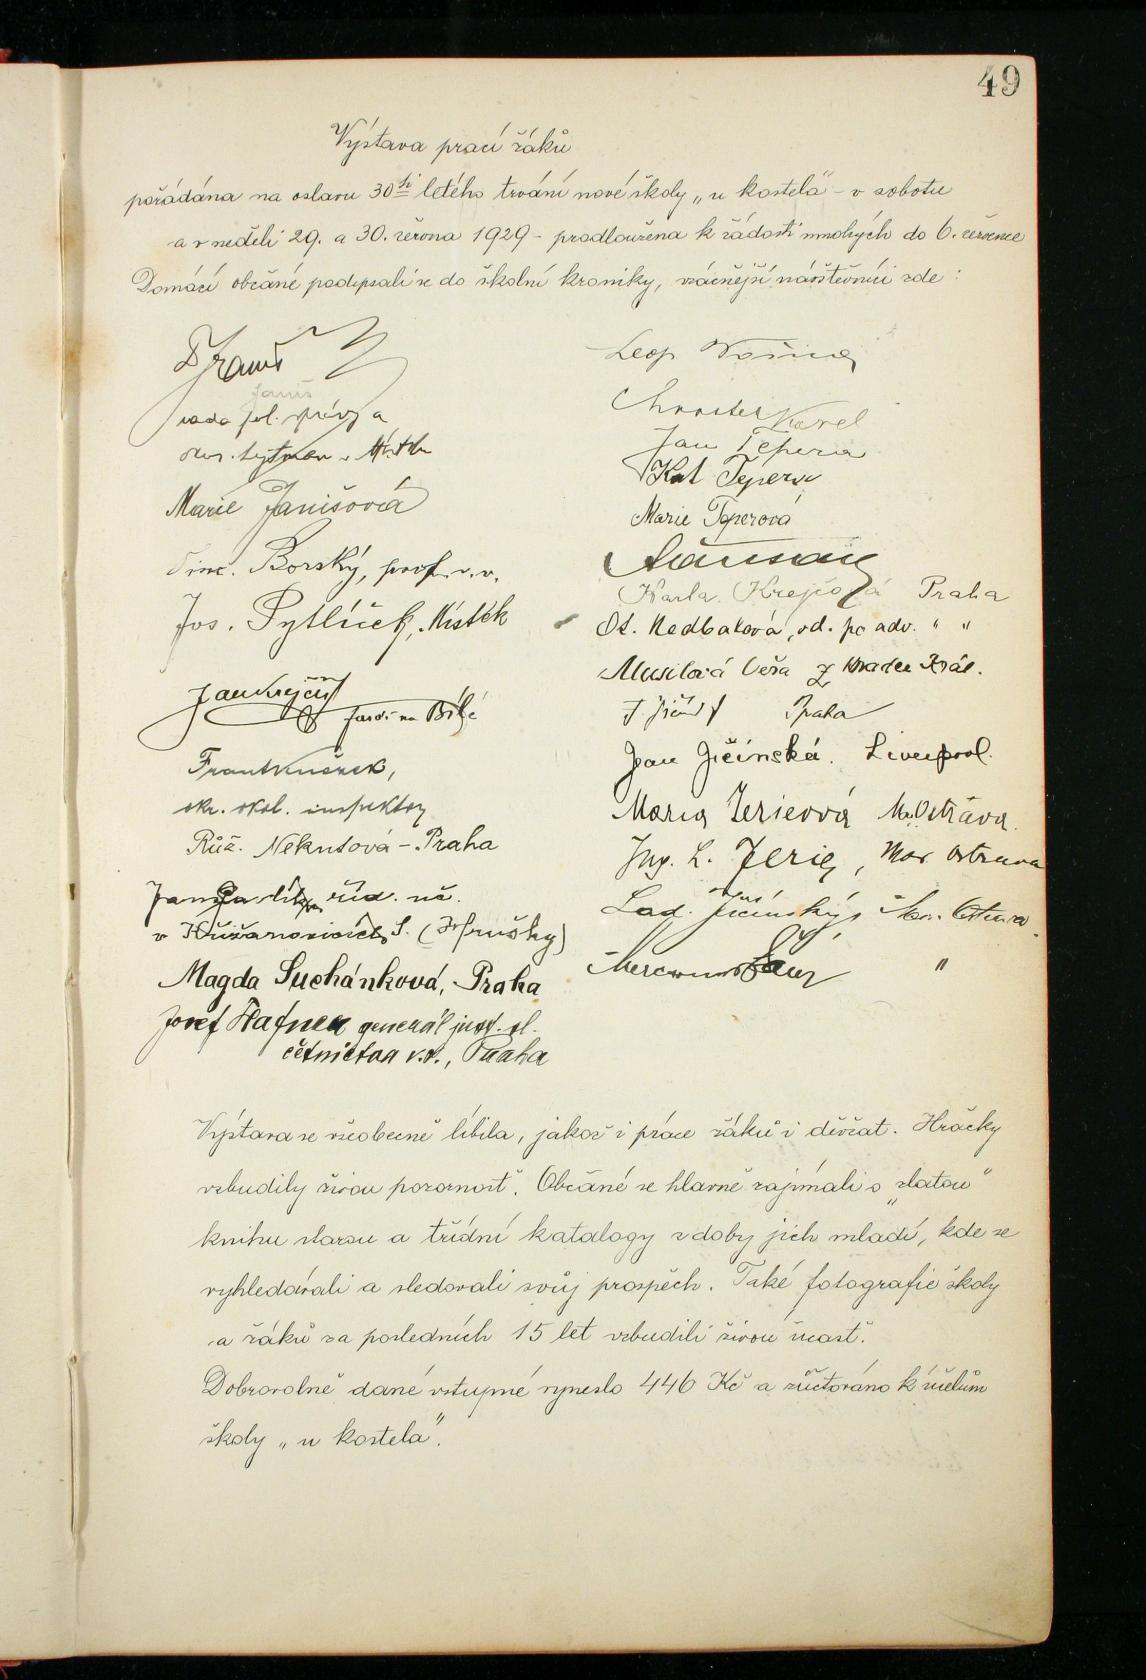 49
Výstava prací žáků
pořádána na oslavu 30ti letého trvání nové školy „u kostela" - v sobotu
a v neděli 29. a 30. června 1929 - prodloužena k žádosti mnohých do 6. července
Domácí občané podepsali se do školní kroniky, vzácnější návštěvníci zde :
Janiš
rada pol. správy a
Marie Janišová
Vinc. Borský, prof. v. v.
Jos. Pytlíček, Místek
Jan Krejčí
farář na Bílé
Frant. Kučerek,
okr. škol. inspektor
Růž. Nekutová - Praha
Jan Pavlík, říd. uč.
v Křižanovicích S. (Hrušky)
Magda Suchánková, Praha
Josef Hafner generál just. sl.
četnictva v.v., Praha
Leop.
Karel
Jan Tepera
Kat Tepera
Marie Teperová
Karla Krejčová Praha
Ot. Nedbalová, vd. po adv. " "
Musilová Věra z Hradce Král.
J. Jičínský Praha
Jean Jičínská. Liverpool.
Maria Jeřieová M. Ostrava.
Ing. L. Jeřie, Mor. Ostrava
Lad. Jičínský, Mor. Ostrava.
"
Výstava se všeobecně líbila, jakož i práce žáků i děvčat. Hračky
vzbudily živou pozornost. Občané se hlavně zajímali o „zlatou"
knihu starou a třídní katalogy z doby jich mladí, kde se
vyhledávali a sledovali svůj prospěch. Také fotografie školy
a žáků za posledních 15 let vzbudili živou účast.
Dobrovolné dané vstupné vyneslo 446 Kč a zúčtováno k účelům
školy „u kostela".